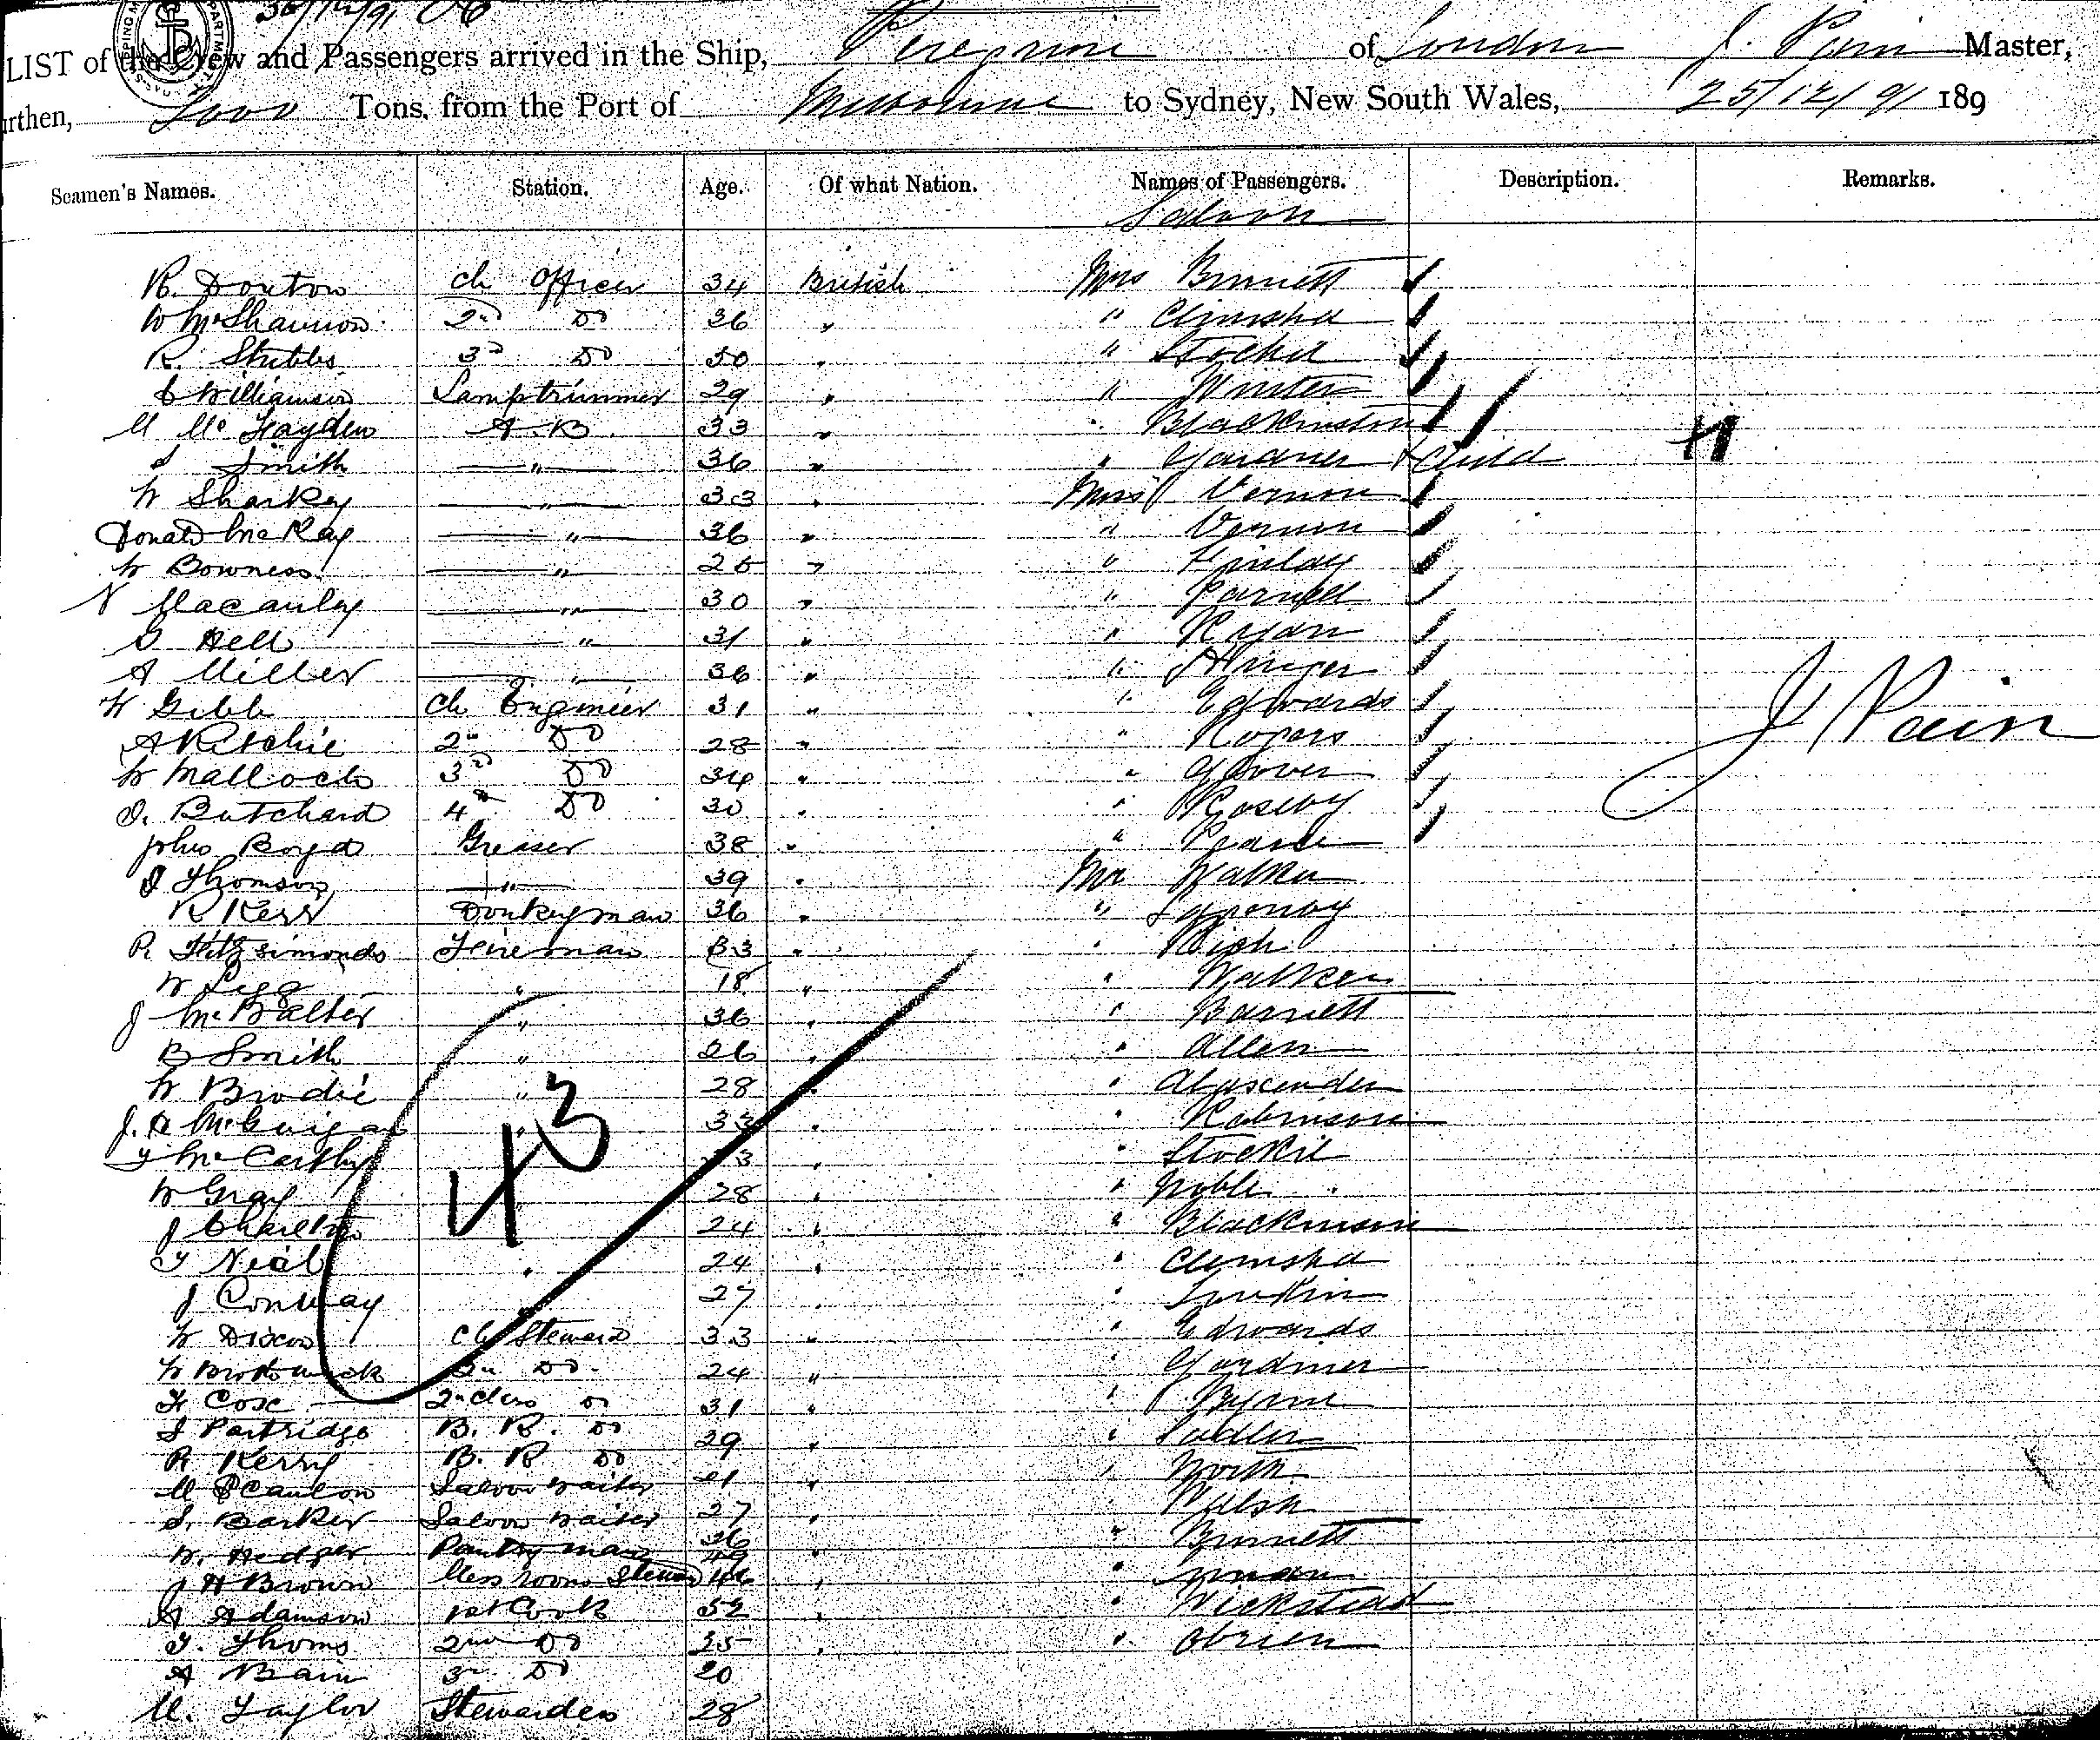 LIST of the Crew and Passengers arrived in the Ship, Peregrine of London J. Pain Master,
rthen, Tons, from the Port of Melbourne to Sydney, New South Wales, 25/12/91 189
Seamen's Names. Station. Age. Of what Nation. Names of Passengers. Description. Remarks.
Saloon
R. Douton ch Officer 34 British Mrs Bennett
W McShannon 2nd Do 36 " " Climsha
R. Stubbs 3d Do 30 " " Stockil
Williamson Lamptrimmer 29 " " Winter
M Mc Fayden A.B. 33 "
S Smith " 36 " " Gardner & Child
W Sharkey " 33 " Miss Vernon
Donald McKay " 36 " " Vernon
W Bowness " 25 " " Finlay
N Macauley " 30 " " Parnell
G Hell " 31 " " Ryan
A Miller " 36 "
W Gibb ch Engineer 31 " " Edwards
A Ritchie 2nd Do 28 " " Rogers
W Malloch 3d Do 34 " " Glover
D. Butchard 4th Do 30 " " Roseby
John Boyd Greaser 38 " " Pearse
J Thomson " 39 " Mr Walker
R Kerr Donkeyman 36 "
R Fitzsimonds Fireman 33 "
W Legg " 18 " " Walker
J McWalter " 36 " " Barnett
B Smith " 26 " " Allen
W Brodie " 28 "
J. A McGuigan " 33 " " Robinson
T McCarthy " " Stockil
W Gray " 28 " " Noble
J Charlton 24 " "
T Neal " 24 " " Clemsha
J Conway " 27 "
W Dixon Ch Steward 33 " " Edwards
W 2n Do. 24 " " Gardiner
W Cox 2nd class Do 31 " " Byrne
J Partridge B. R. Do 29 " " Sadler
R Kerry B. R Do " North
M Scanlon Saloon waiter 21 " Walsh
S. Barker Saloon waiter 27 " " Bennett
W. Hedger Pantryman 36 "
J H Brown Mess room Steward 46 " " Wickstead
A Adamson 1st Cook 52 " " Obrien
T. Thoms 2nd Do 35 "
A Bain 3rd Do 20
M. Taylor Stewardess 28
J Pain
43